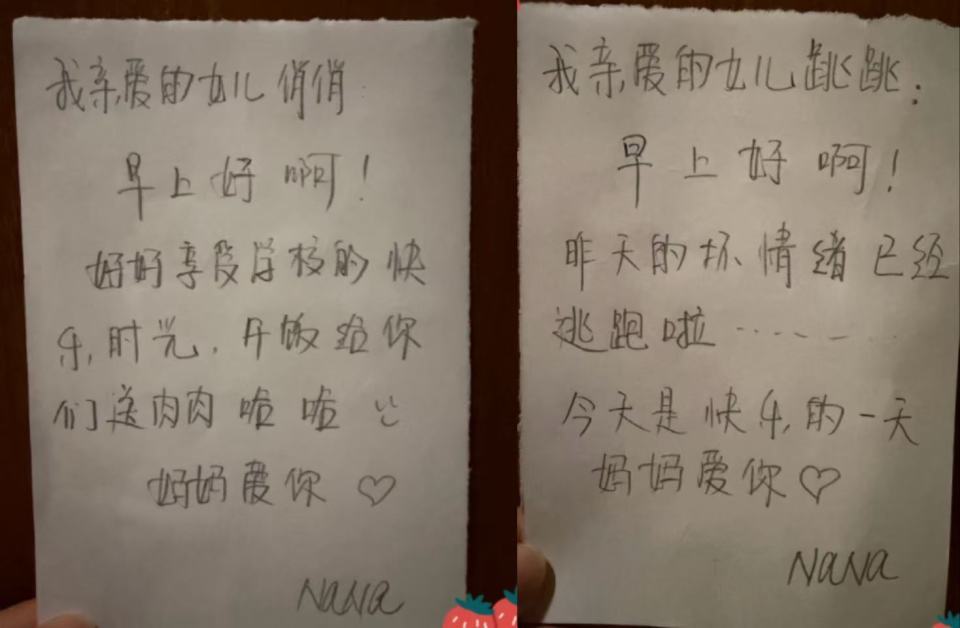 我亲爱的女儿俏俏
早上好啊!
好好享受学校的快
乐时光,午饭给你
们送肉肉哈哈
妈妈爱你♡
NANA
我亲爱的女儿跳跳:
早上好啊!
昨天的坏情绪已经
逃跑啦……
今天是快乐的一天
妈妈爱你♡
NaNa